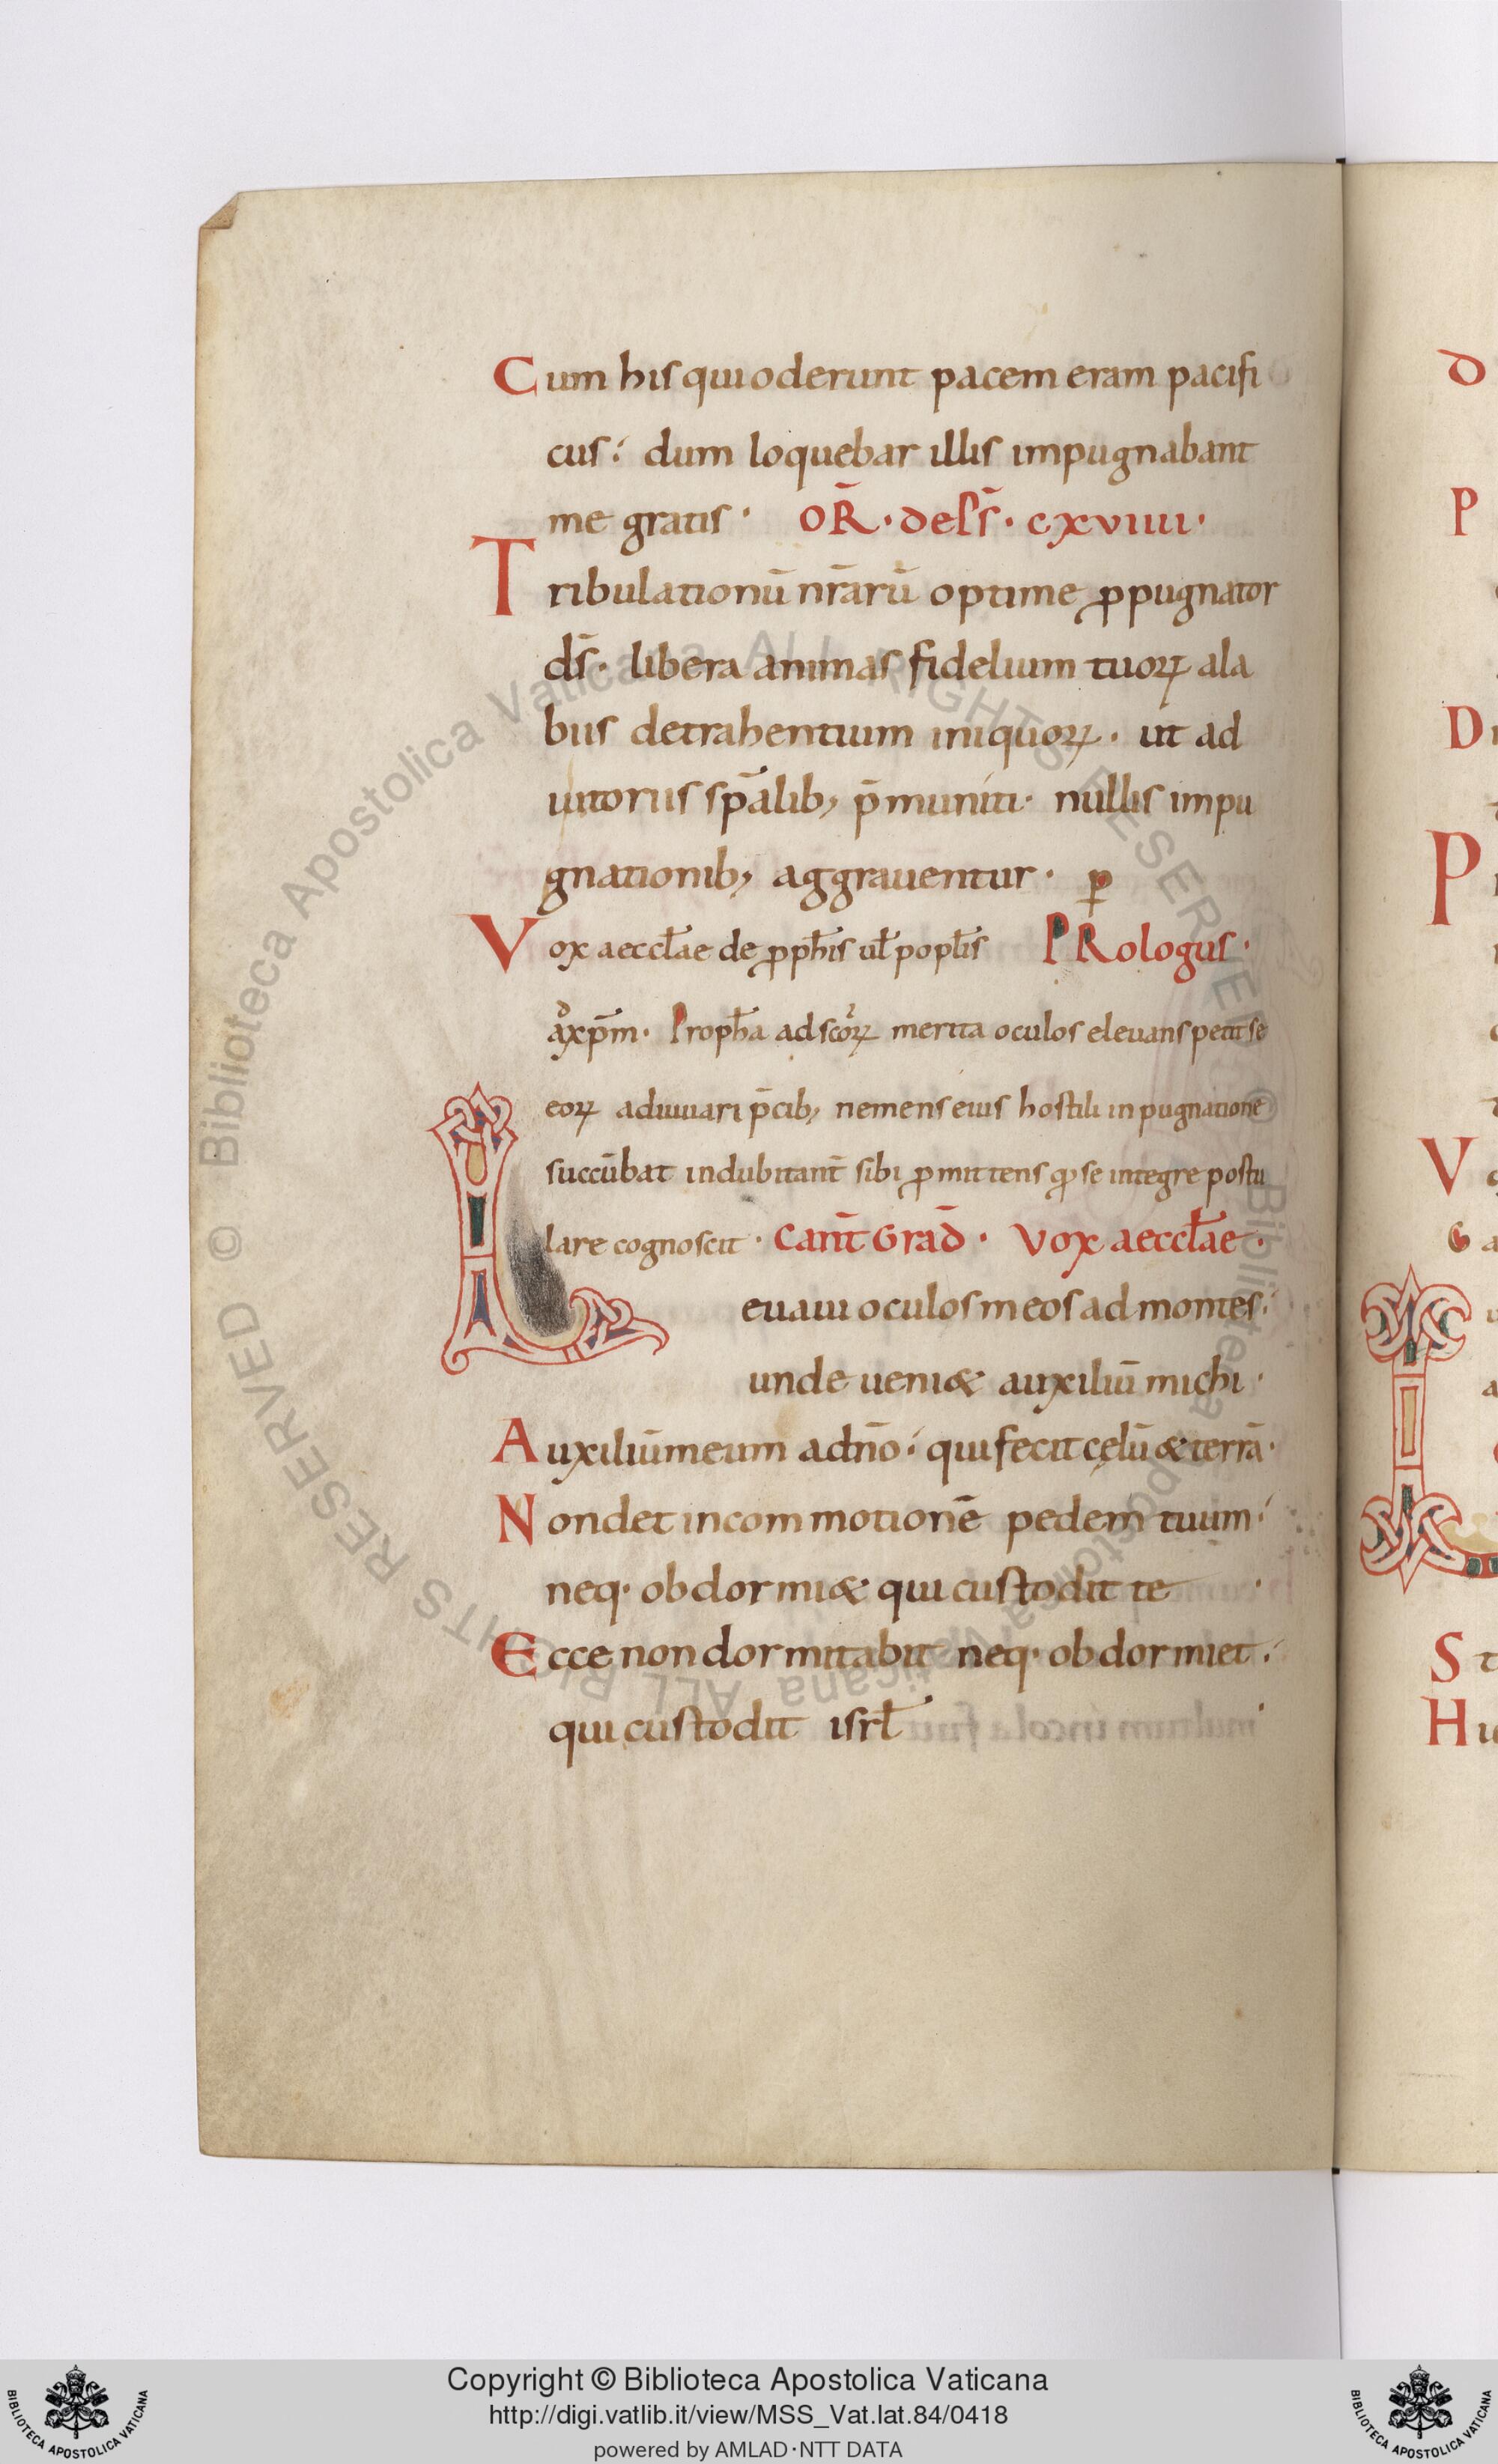 Cum his qui oderunt pacem eram pacifi
cus: dum loquebar illis impugnabant
me gratis · OR̄ · de ps̄ · cxviiii ·
Tribulationū nr̄arū optime ꝓpugnator
ds̄ · libera animas fidelium tuoꝝ a la
biis detrahentium iniquoꝝ · ut ad
iutoriis sp̄alib; p̄muniti · nullis impu
gnationib; aggrauentur · ꝑ
Vox aeccłae de ꝓph̄is uł popłis PRologus ·
ad xp̄m · Proph̄a ad sc̄oꝝ merita oculos eleuans petit se
eoꝝ adiuuari p̄cib; ne mens eius hostili inpugnatione
succūbat indubitant̄ sibi ꝓmittens qđ se integre postu
lare cognoscit · Cant̄ Grad̄ · Vox aeccłae ·
Leuaui oculos meos ad montes:
unde ueni& auxiliū michi ·
Auxiliū meum a dn̄o: qui fecit cęlū & terrā ·
Non det in commotionē pedem tuum:
neq· obdormi& qui custodit te ·
Ecce non dormitabit neq· obdormiet:
qui custodit isrł ·
D
P
D
P
V
G
S
H
© Biblioteca Apostolica Vaticana ALL RIGHTS RESERVED © Biblioteca Apostolica Vaticana ALL RIGHTS RESERVED
Copyright © Biblioteca Apostolica Vaticana
http://digi.vatlib.it/view/MSS_Vat.lat.84/0418
powered by AMLAD·NTT DATA
BIBLIOTECA APOSTOLICA VATICANA
BIBLIOTECA APOSTOLICA VATICANA